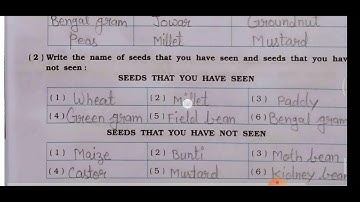 Bengal gram Jowar Groundnut
Peas Millet Mustard
(2) Write the name of seeds that you have seen and seeds that you hav
not seen :
SEEDS THAT YOU HAVE SEEN
(1) Wheat (2) Millet (3) Paddy
(4) Green gram (5) Field bean (6) Bengal gram
SEEDS THAT YOU HAVE NOT SEEN
(1) Maize (2) Bunti (3) Moth bean
(4) Castor (5) Mustard (6) Kidney bean